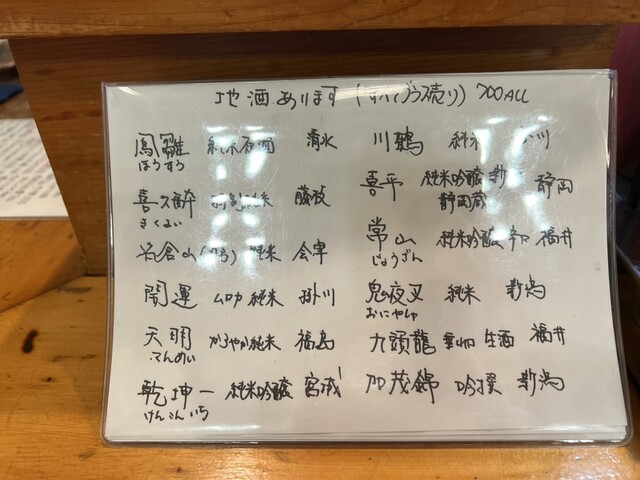 地酒あります (すべてグラス売り) 700ALL
鳳雛 純米原酒 清水
ほうすう
喜久酔 特別純米 藤枝
きくよい
名倉山 純米 会津
開運 山田純米 掛川
天明 かろやか純米 福島
てんめい
乾坤一 純米吟醸 宮城
けんこんいち
川鶴 純米 川
喜平 純米吟醸 静岡
静岡蔵
常山 純米吟醸 福井
じょうざん
鬼夜叉 純米 新潟
おにやしゃ
九頭龍 生酒 福井
加茂錦 吟撰 新潟